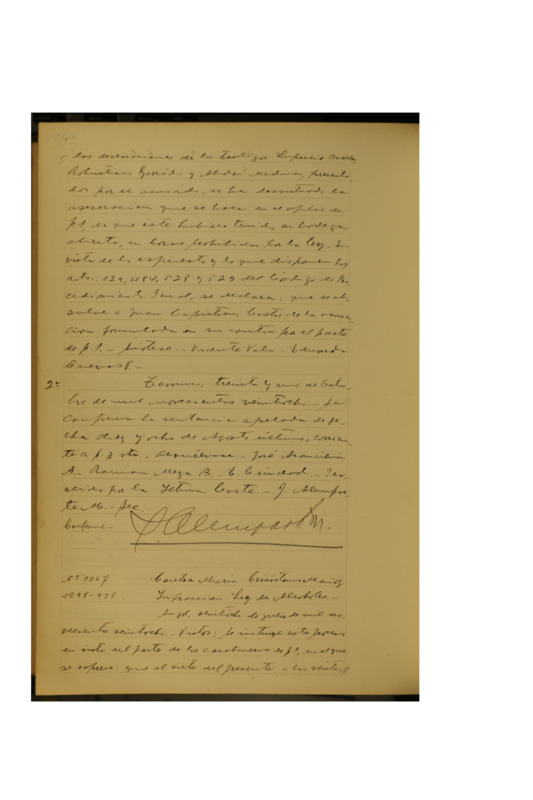 y las declaraciones de los testigos Lupercio
Robustiano y Abdon Medina, presenta-
dos por el acusado, se ha desvirtuado la
aseveracion que se hace en el oficio de
f 1, de que éste hubiera tenido su bodega
abierta, en horas prohibidas por la ley. En
vista de lo espuesto y lo que disponen los
arts. 129, 484, 528 y 529 del Codigo de Pro-
cedimiento Penal, se declara: que se ab-
suelve a Juan Capistran de la acusa-
cion formulada en su contra por el parte
de f. 1.- Vicente - Eduardo
Cuevas V.-
2a Temuco, treinta y uno de Octu-
bre de mil novecientos veintiocho.- Se
confirma la sentencia apelada de fe-
cha diez y ocho de Agosto último, corrien-
te a f 3 vta.- Devuélvase.- José
A.- Ramon Meza B.- Pro-
veido por la Iltma Corte.- J. Alempar-
te M.- Sec.
Conforme.- J. Alemparte M.
Nº 1267 Contra Mario Crisóstomo Muñoz
1298-928. Infraccion Ley de Alcoholes.-
veintiocho de julio de mil no-
vecientos veintiocho.- Vistos: se instruye este proceso
en vista del parte de los carabineros de f 1, en el que
se espresa: que el siete del presente, a las veinte y